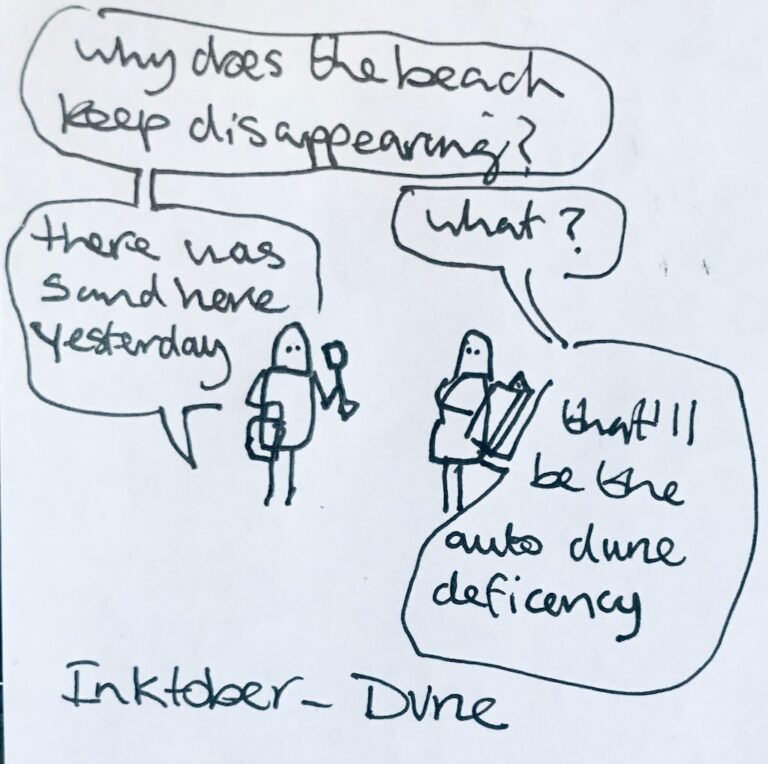 why does the beach
keep disappearing?
there was
sand here
yesterday
what?
that'll
be the
auto dune
deficency
Inktober - Dune